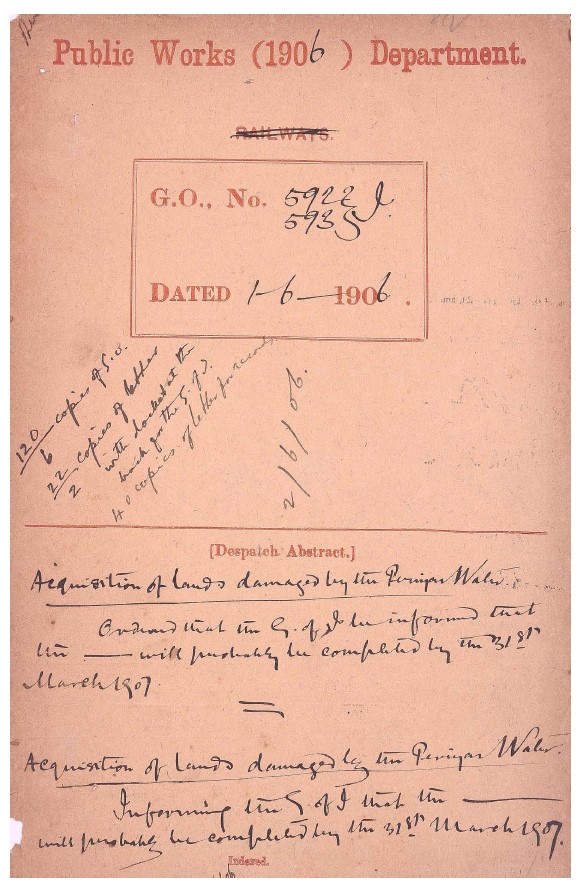 Public Works (1906) Department.
RAILWAYS.
G.O., No. 5922 I
593S
DATED 1-6-1906.
120 copies of G.O.
6
22 copies of letter
2 with docket at the
back for the G. of I.
40 copies of letter for records.
2/9/06.
[Despatch Abstract.]
Acquisition of lands damaged by the Periyar Water.
Ordered that the G. of I be informed that
the — will probably be completed by the 31st
March 1907.
Acquisition of lands damaged by the Periyar Water.
Informing the G. of I that the —
will probably be completed by the 31st March 1907.
Indexed.